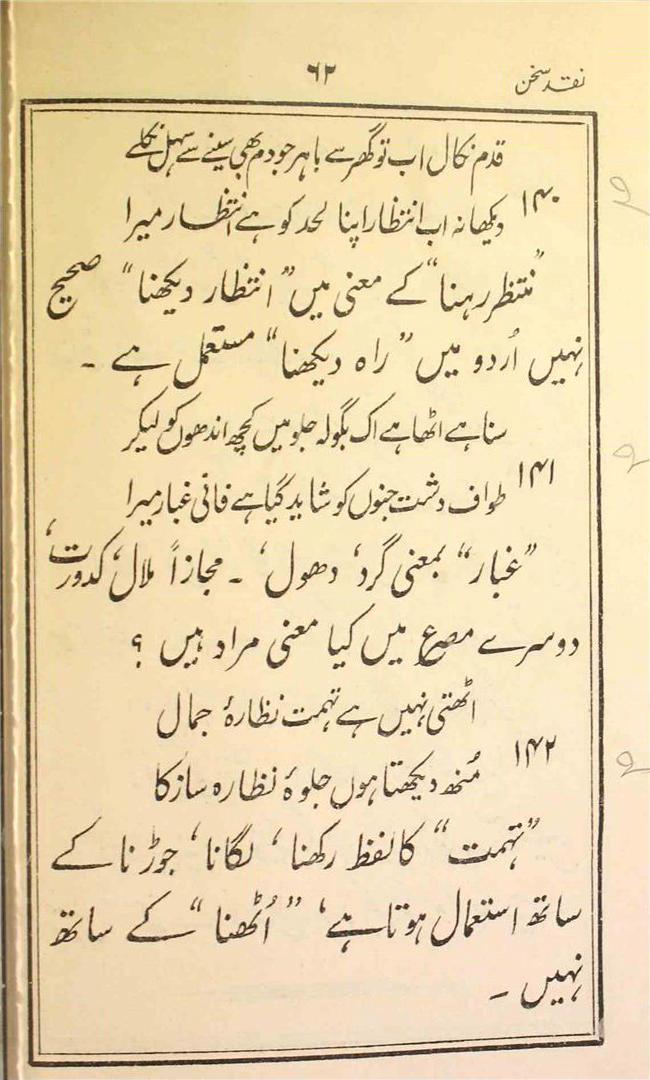 نقد سخن
۶۲
قدم نکال اب تو گھر سے باہر جو دم بھی سینے سے سہل نکلے
۱۴۰
دیکھا نہ اب انتظار اپنا لحد کو ہے انتظار میرا
”منتظر رہنا“ کے معنی میں ”انتظار دیکھنا“ صحیح
نہیں اُردو میں ”راہ دیکھنا“ مستعمل ہے ۔
سنا ہے اٹھا ہے اک بگولہ جلو میں کچھ اندھوں کو لیکر
۱۴۱
طواف دشت جنوں کو شاید گیا ہے فانی غبار میرا
”غبار“ بمعنی گرد، دھول، ۔ مجازاً ملال، کدورت،
دوسرے مصرع میں کیا معنی مراد ہیں ؟
اٹھتی نہیں ہے تہمت نظارۂ جمال
۱۴۲
مُنھ دیکھتا ہوں جلوۂ نظارہ ساز کا
”تہمت“ کا لفظ رکھنا، لگانا، جوڑنا کے
ساتھ استعمال ہوتا ہے، ”اُٹھنا“ کے ساتھ
نہیں ۔